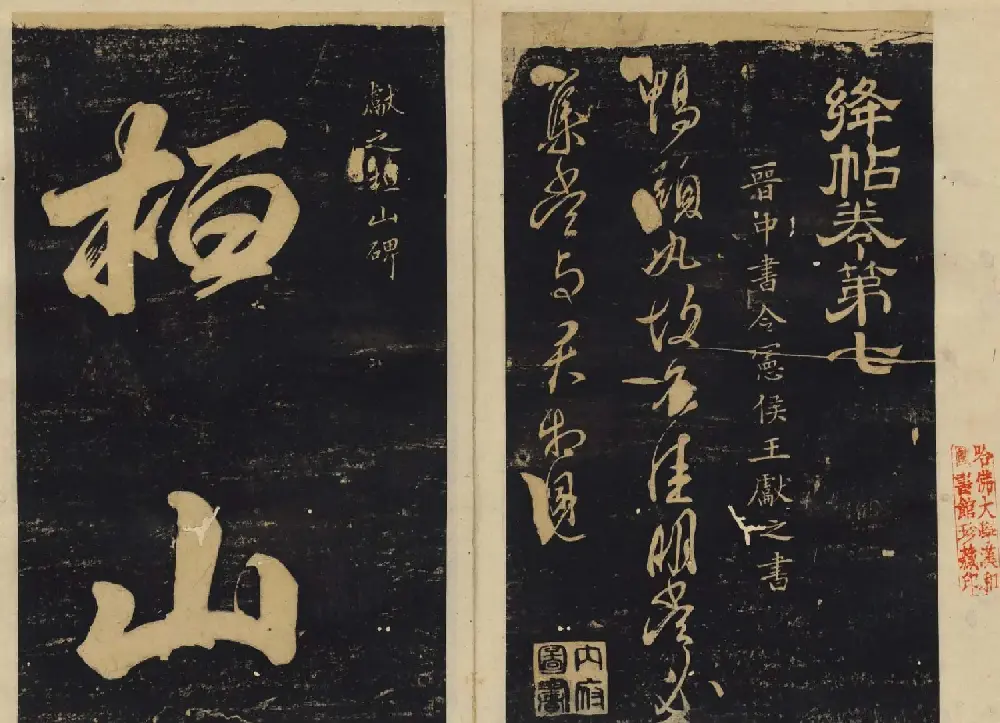 絳帖卷第七
晉中書令憲侯王獻之書
鴨頭丸故不佳明當必
集當與君相見
內府
圖書
獻之桓山碑
桓山
哈佛大學漢和
圖書館珍藏印